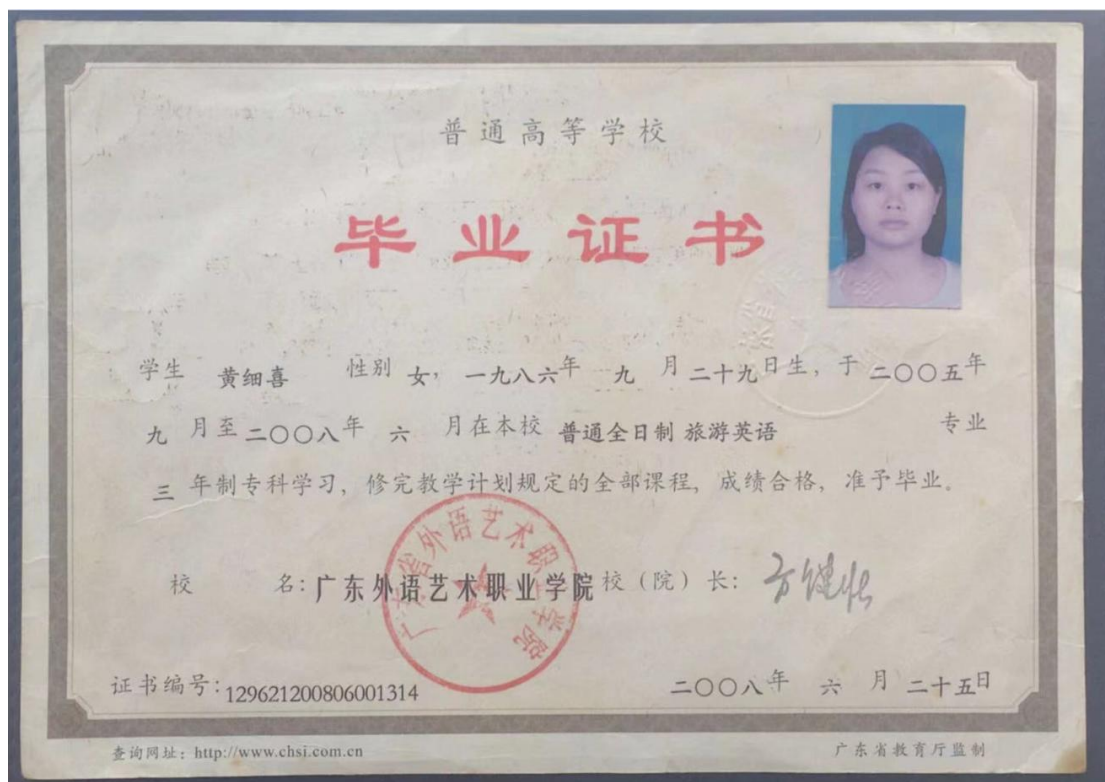 普通高等学校
毕业证书
学生 黄细喜 性别 女，一九八六年 九 月 二十九日生，于 二〇〇五年
九 月至 二〇〇八年 六 月在本校 普通全日制 旅游英语 专业
三 年制专科学习，修完教学计划规定的全部课程，成绩合格，准予毕业。
校 名：广东外语艺术职业学院 校（院）长：
证书编号：129621200806001314 二〇〇八年 六 月 二十五日
查询网址：http://www.chsi.com.cn 广东省教育厅监制